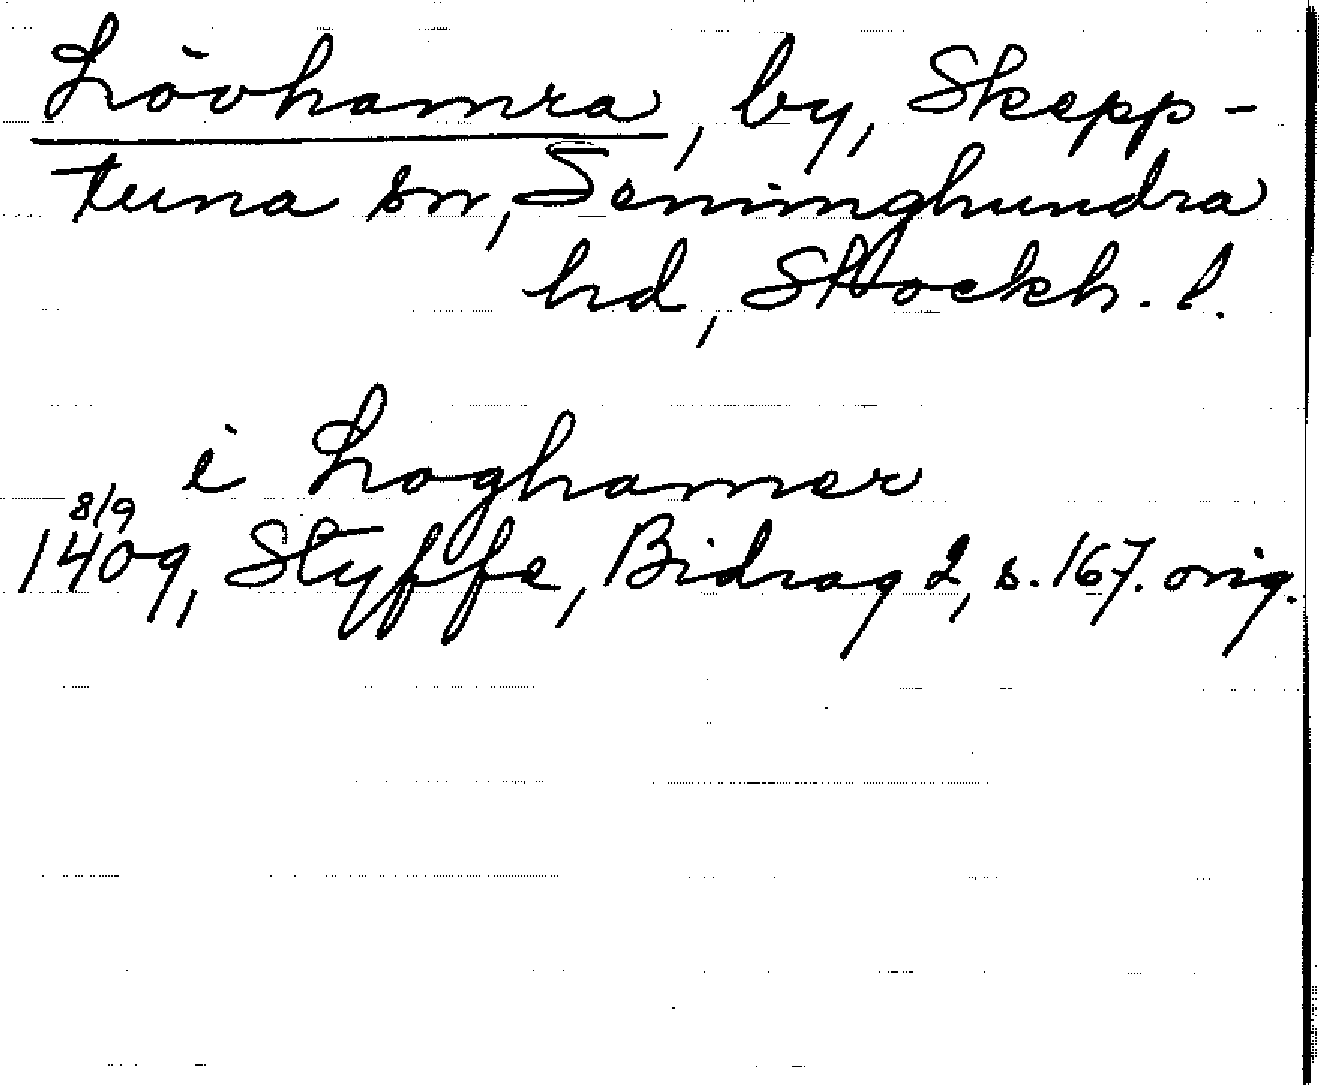 Lövhamra, by, Skepp-
tuna sn, Seminghundra
hd, Stockh. l.
i Loghamer
8/9
1409, Styffe, Bidrag 2, s. 167. orig.